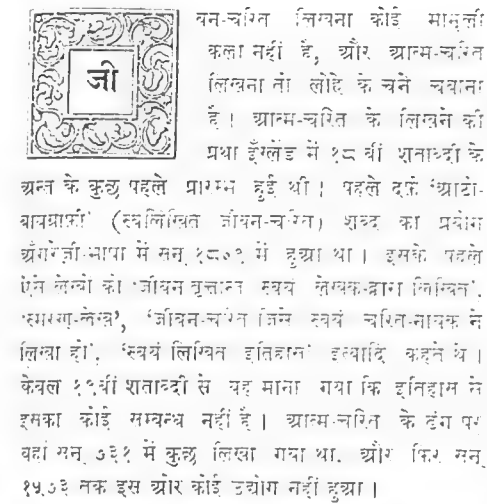 जीवन-चरित लिखना कोई मामूली
कला नहीं है, और आत्म-चरित
लिखना तो लोहे के चने चबाना
है। आत्म-चरित के लिखने की
प्रथा इँग्लेंड में १८ वीं शताब्दी के
अन्त के कुछ पहले प्रारम्भ हुई थी। पहले दफ़े ‘ऑटो-
बायग्राफ़ी’ (स्वलिखित जीवन-चरित) शब्द का प्रयोग
अँगरेज़ी-भाषा में सन् में हुआ था। इसके पहले
ऐसे लेखों को ‘जीवन वृत्तान्त स्वयं लेखक-द्वारा लिखित’,
‘स्मरण-लेख’, ‘जीवन-चरित जिसे स्वयं चरित-नायक ने
लिखा हो’, ‘स्वयं लिखित इतिहास’ इत्यादि कहते थे।
केवल १९वीं शताब्दी से यह माना गया कि इतिहास से
इसका कोई सम्बन्ध नहीं है। आत्म-चरित के ढंग पर
वहाँ सन् ७३१ में कुछ लिखा गया था, और फिर सन्
१५७३ तक इस ओर कोई उद्योग नहीं हुआ।